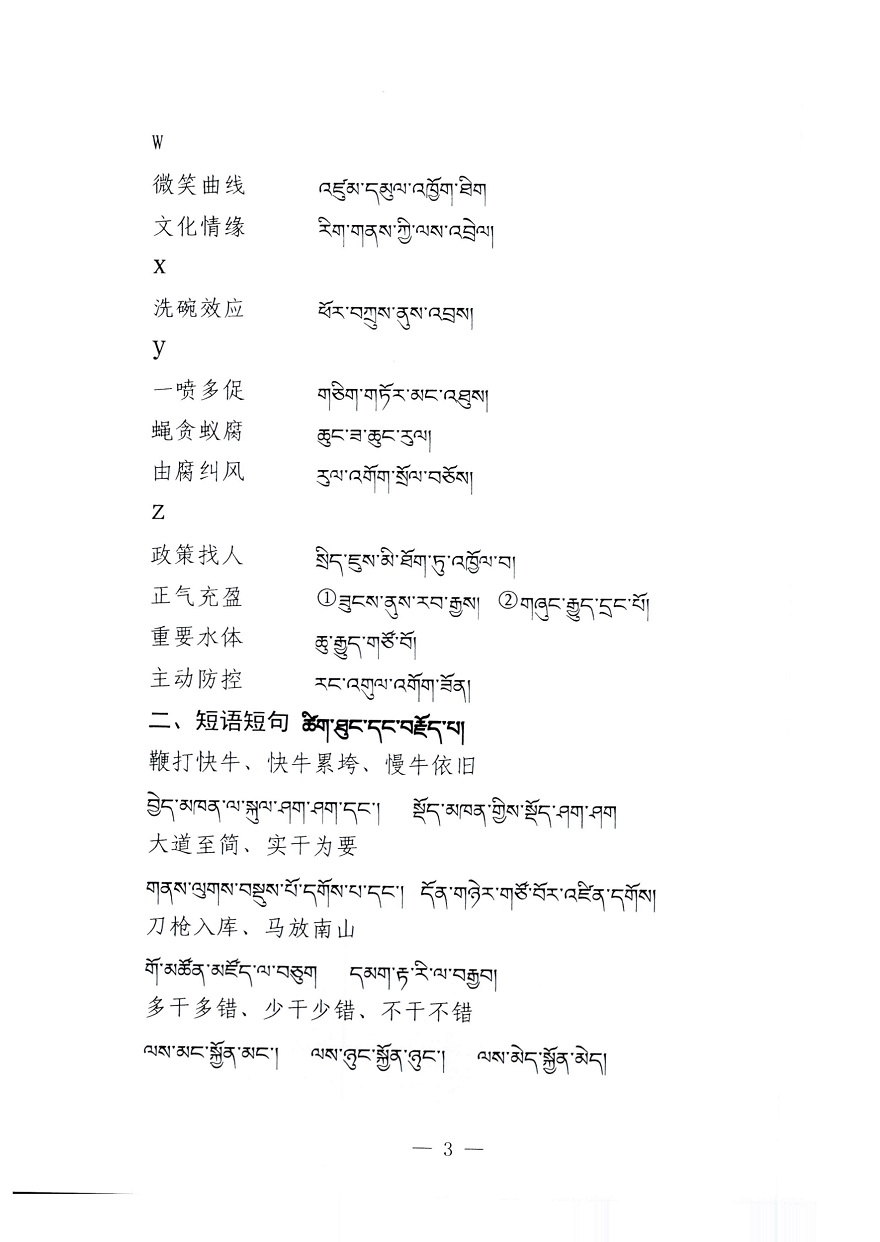 W
微笑曲线 འཛུམ་དམུལ་འཁྱོག་ཐིག
文化情缘 རིག་གནས་ཀྱི་ལས་འབྲེལ།
x
洗碗效应 ཕོར་བཀྲུས་ནུས་འབྲས།
y
一喷多促 གཅིག་གཏོར་མང་འཐུས།
蝇贪蚁腐 ཆུང་ཟ་ཆུང་རུལ།
由腐纠风 རུལ་འགོག་སྲོལ་བཅོས།
z
政策找人 སྲིད་ཇུས་མི་ཐོག་ཏུ་འཁྱོལ་བ།
正气充盈 ①ཟུངས་ནུས་རབ་རྒྱས། ②གཞུང་རྒྱུད་དྲང་པོ།
重要水体 ཆུ་རྒྱུད་གཙོ་བོ།
主动防控 རང་འགུལ་འགོག་ཟོན།
二、短语短句 ཚིག་ཐུང་དང་བརྗོད་པ།
鞭打快牛、快牛累垮、慢牛依旧
བྱེད་མཁན་ལ་སྐུལ་ཤག་ཤག་དང་། སྡོད་མཁན་གྱིས་སྡོད་ཤག་ཤག
大道至简、实干为要
གནས་ལུགས་བསྡུས་པོ་དགོས་པ་དང་། དོན་གཉེར་གཙོ་བོར་འཛིན་དགོས།
刀枪入库、马放南山
གོ་མཚོན་མཛོད་ལ་བཅུག དམག་རྟ་རི་ལ་བརྒྱབ།
多干多错、少干少错、不干不错
ལས་མང་སྐྱོན་མང་། ལས་ཉུང་སྐྱོན་ཉུང་། ལས་མེད་སྐྱོན་མེད།
— 3 —